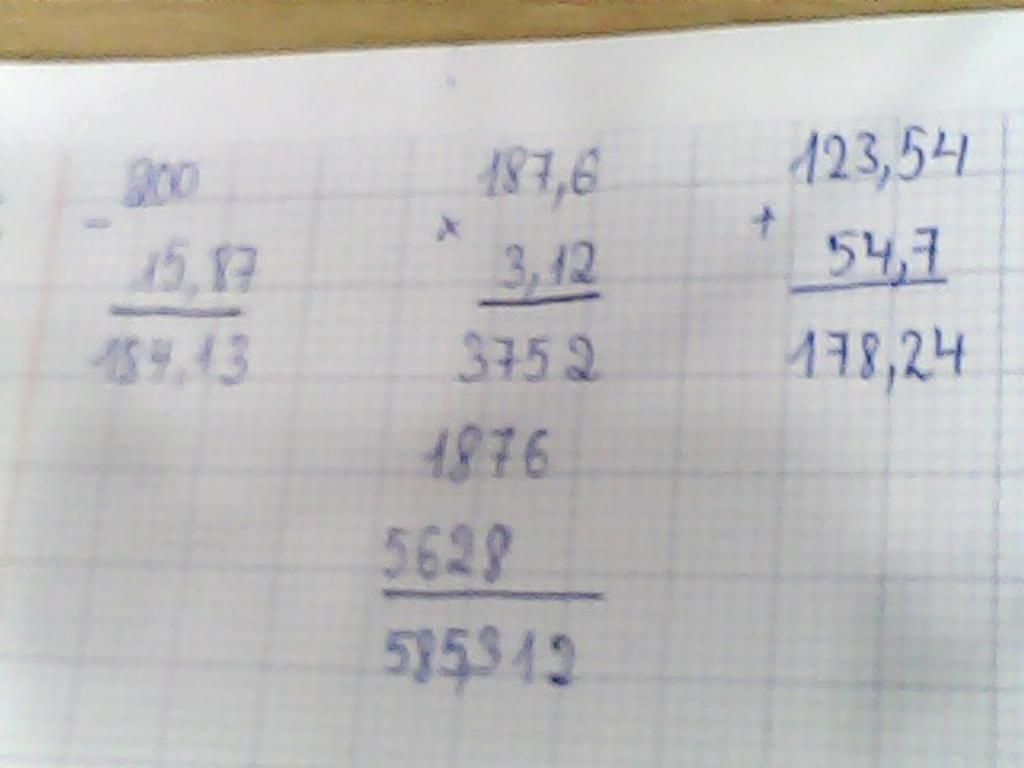 200
-
15,87
184,13
187,6
x
3,12
3752
1876
5628
585,312
123,54
+
54,7
178,24